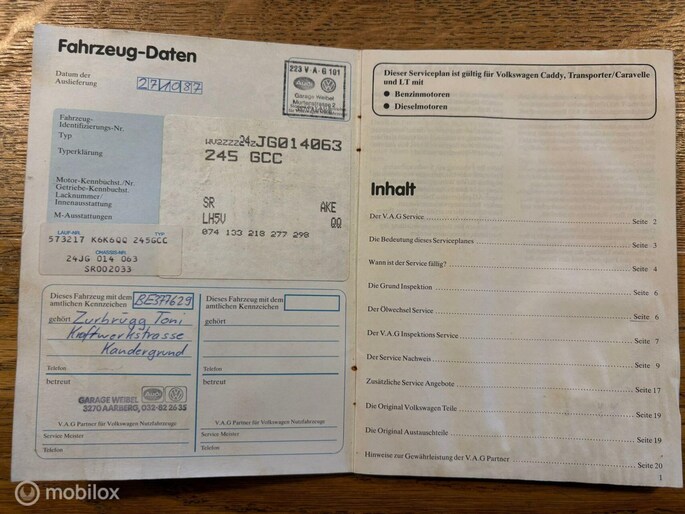 Fahrzeug-Daten
Datum der
Auslieferung
271087
223 V·A·G 101
Garage Weibel
Fahrzeug-
Identifizierungs-Nr.
Typ
Typerklärung
Motor-Kennbuchst./Nr.
Getriebe-Kennbuchst.
Lacknummer/
Innenausstattung
M-Ausstattungen
WV2ZZZ24ZJG014063
245 GCC
SR AKE
LH5V QQ
074 133 218 277 298
LAUF-NR. TYP
573217 K6K6QQ 245GCC
CHASSIS-NR.
24JG 014 063
SR002033
Dieses Fahrzeug mit dem
amtlichen Kennzeichen
BE377629
gehört
Zurbrügg Toni
Kraftwerkstrasse
Kandergrund
Telefon
betreut
GARAGE WEIBEL
3270 AARBERG, 032-82 26 35
V.A.G Partner für Volkswagen Nutzfahrzeuge
Service Meister
Telefon
Dieses Fahrzeug mit dem
amtlichen Kennzeichen
gehört
Telefon
betreut
V.A.G Partner für Volkswagen Nutzfahrzeuge
Service Meister
Telefon
Dieser Serviceplan ist gültig für Volkswagen Caddy, Transporter/Caravelle
und LT mit
● Benzinmotoren
● Dieselmotoren
Inhalt
Der V.A.G Service Seite 2
Die Bedeutung dieses Serviceplanes Seite 3
Wann ist der Service fällig? Seite 4
Die Grund Inspektion Seite 6
Der Ölwechsel Service Seite 6
Der V.A.G Inspektions Service Seite 7
Der Service Nachweis Seite 9
Zusätzliche Service Angebote Seite 17
Die Original Volkswagen Teile Seite 19
Die Original Austauschteile Seite 19
Hinweise zur Gewährleistung der V.A.G Partner Seite 20
1
mobilox